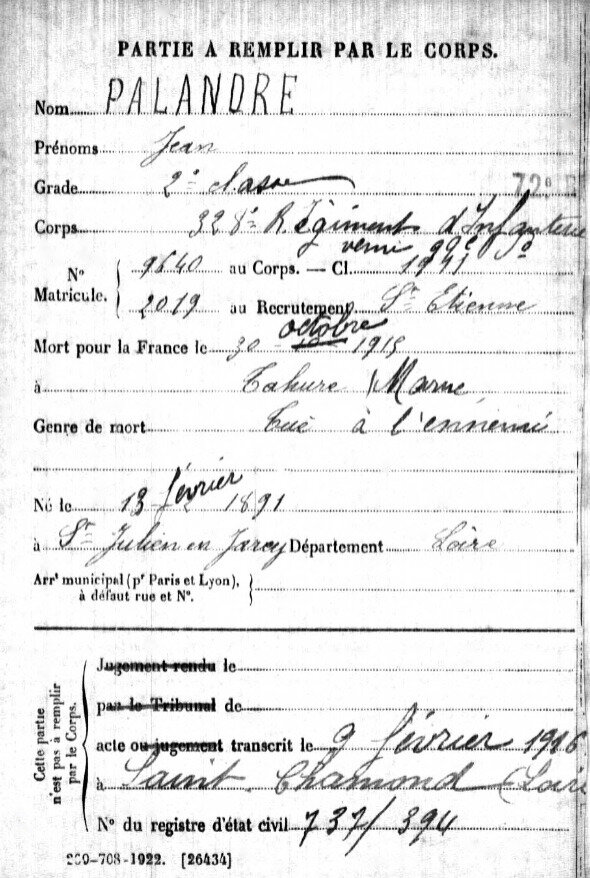 PARTIE A REMPLIR PAR LE CORPS.
Nom PALANDRE
Prénoms Jean
Grade 2e classe
72e
Corps 328e Régiment d'Infanterie
venu 99e
N° Matricule. 9640 au Corps. — Cl. 1911
2019 au Recrutement St Etienne
Mort pour la France le 30 octobre 1915
à Tahure Marne
Genre de mort Tué à l'ennemi
Né le 13 février 1891
à St Julien en Jarez Département Loire
Arrt municipal (pr Paris et Lyon),
à défaut rue et N°.
Cette partie n'est pas à remplir par le Corps.
Jugement rendu le
par le Tribunal de
acte ou jugement transcrit le 9 février 1916
à Saint Chamond (Loire
N° du registre d'état civil 737/394
260-708-1922. [26434]